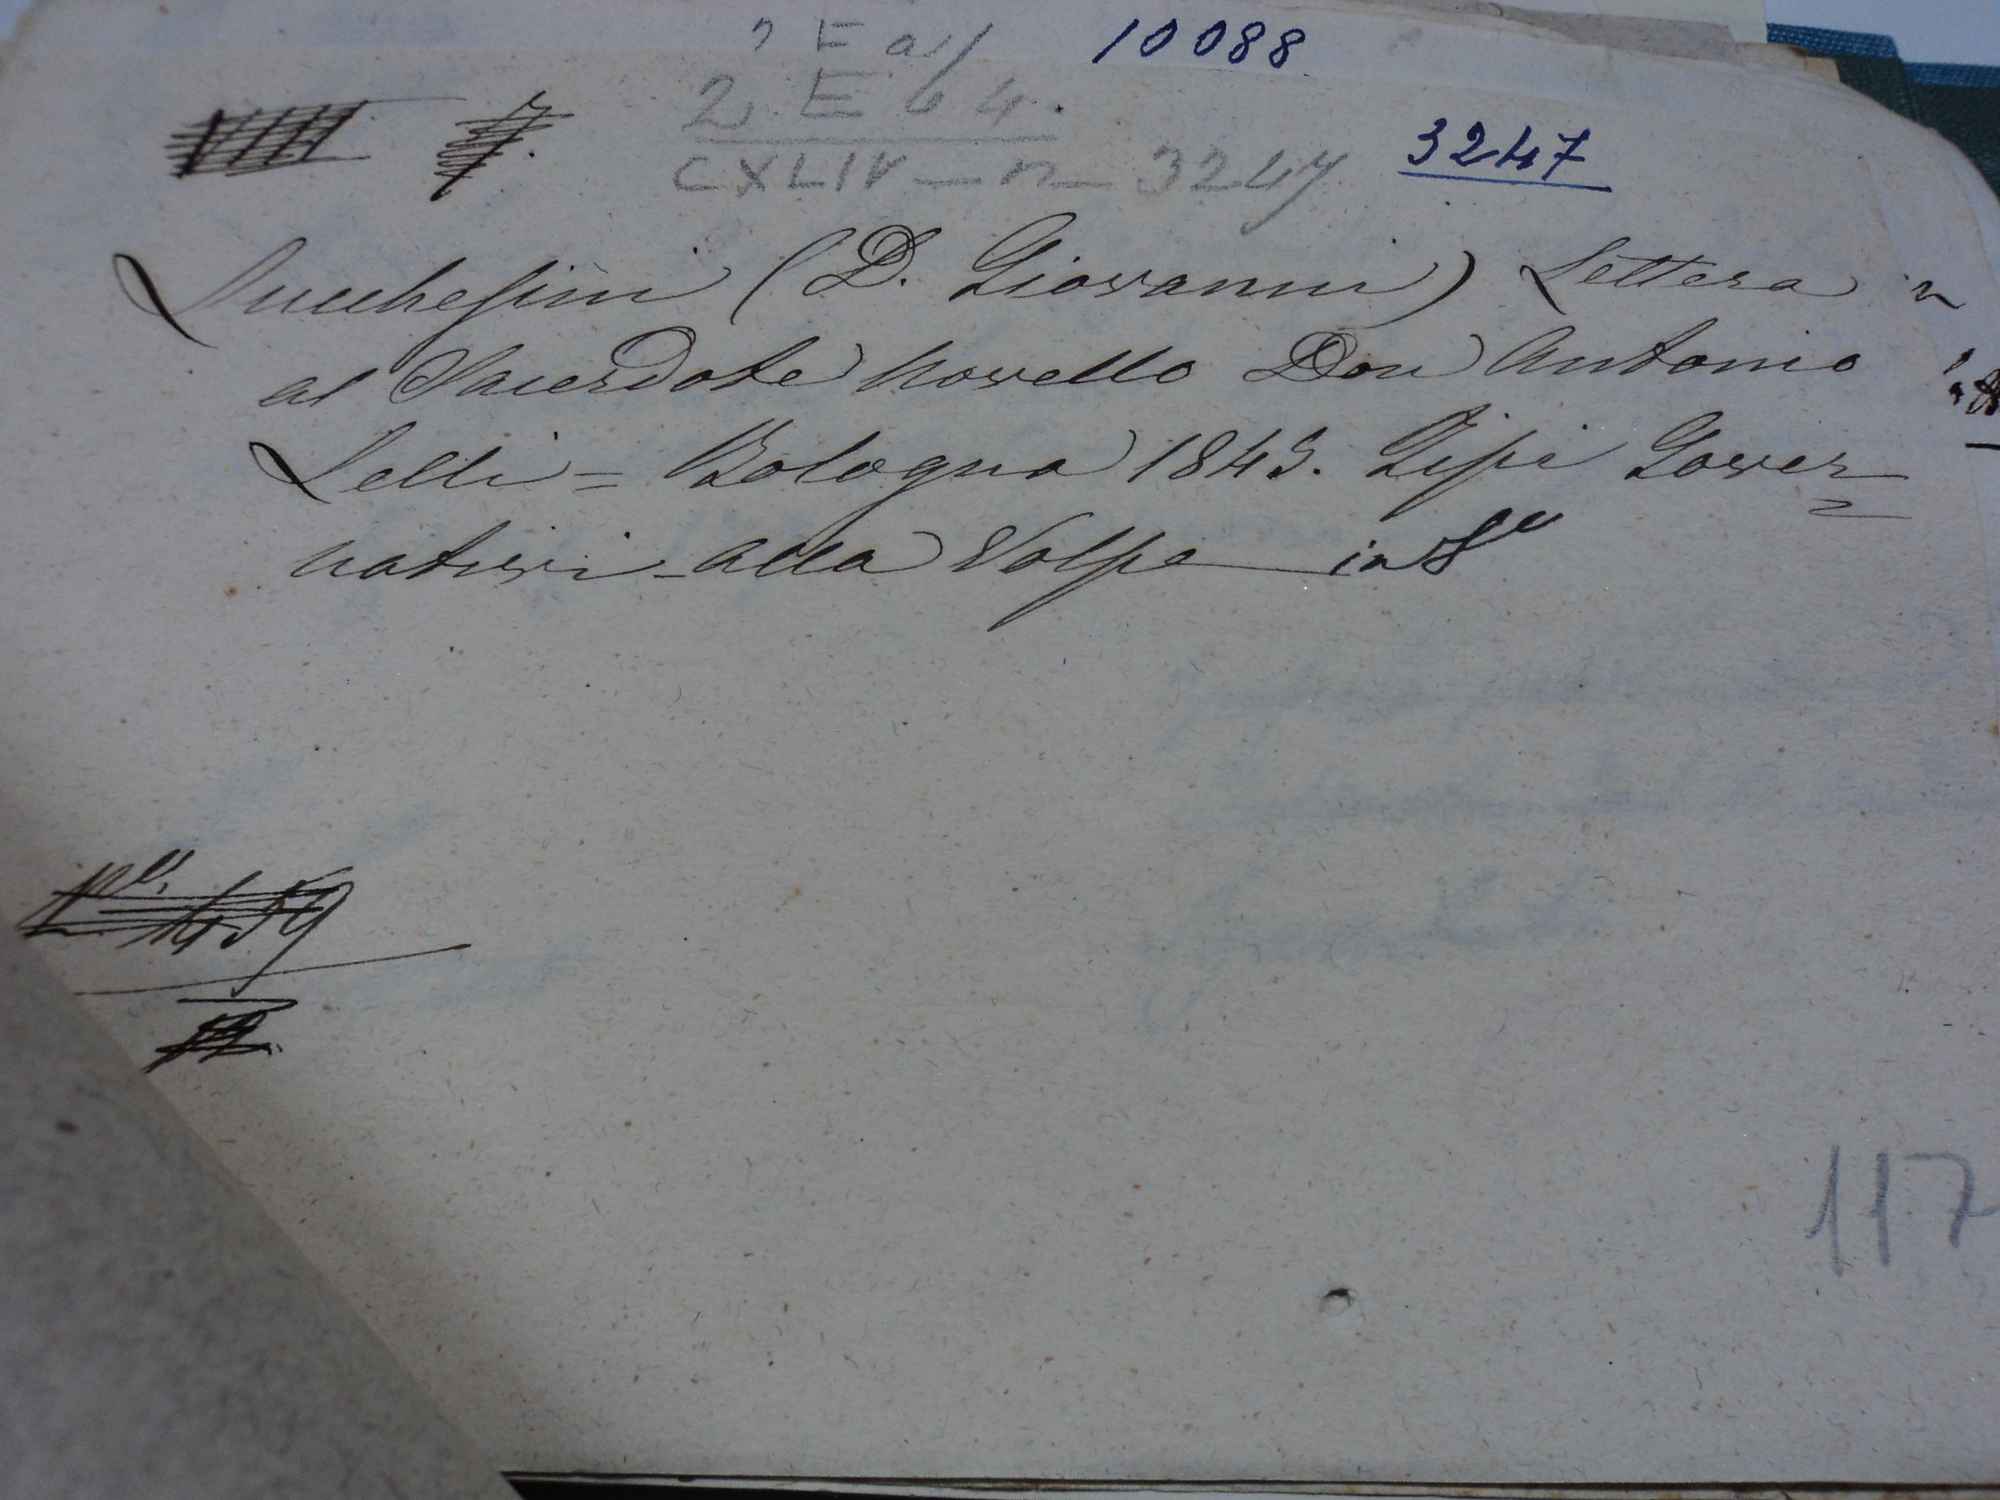 10088
2 E 64.
CXLIV — n — 3247
3247
Lucchesini (D. Giovanni) Lettera
al Sacerdote novello Don Antonio
Lelli = Bologna 1843. Tipi Gover=
nativi alla Volpe in 8°
117